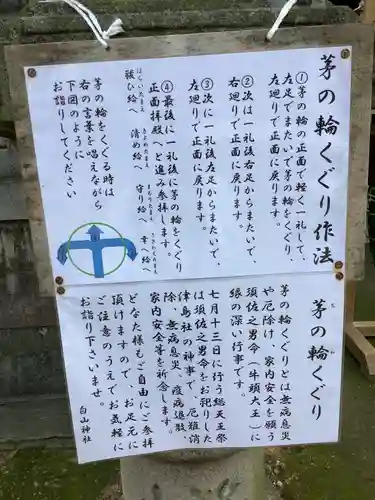 茅の輪くぐり作法
①茅の輪の正面で軽く一礼して、
左足でまたいで茅の輪をくぐり
左廻りで正面に戻ります。
②次は一礼後右足からまたいで、
右廻りで正面に戻ります。
③次に一礼後左足からまたいで、
左廻りで正面に戻ります。
④最後に一礼後に茅の輪をくぐり
正面拝殿へと進み参拝します。
はらいたまえ きよめたまえ まもりたまえ さきわえたまえ
祓ひ給へ 清め給へ 守り給へ 幸へ給へ
茅の輪をくぐる時は
右の言葉を唱えながら
下図のように
お詣りしてください
茅の輪くぐり
茅の輪くぐりとは無病息災
や厄除け、家内安全を願う
須佐之男命(牛頭天王)に
縁の深い行事です。
七月十三日に行う総天王祭
は須佐之男命をお祀りした
津島社の神事で、厄難消
除、無病息災、疫病退散、
家内安全等を祈念します。
どなた様もご自由にご参拝
頂けますので、お足元に
ご注意のうえでお気軽に
お詣り下さいませ。
白山神社